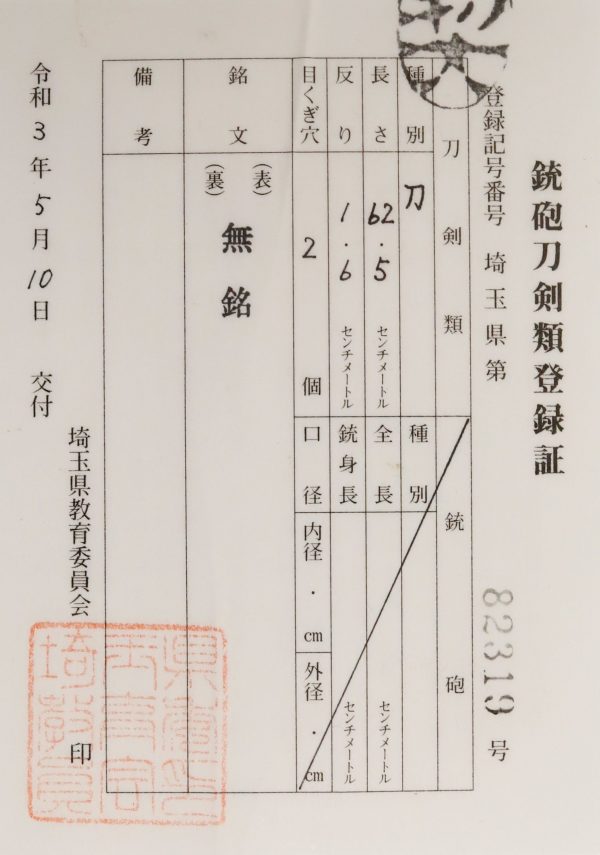 銃砲刀剣類登録証
登録記号番号 埼玉県第 82319 号
刀剣類
種別 刀
長さ 62.5 センチメートル
反り 1.6 センチメートル
目くぎ穴 2 個
銘文 (表) 無銘
(裏)
備考
銃砲
種別
全長 センチメートル
銃身長 センチメートル
口径 内径 . cm 外径 . cm
令和3年5月10日 交付
埼玉県教育委員会 印